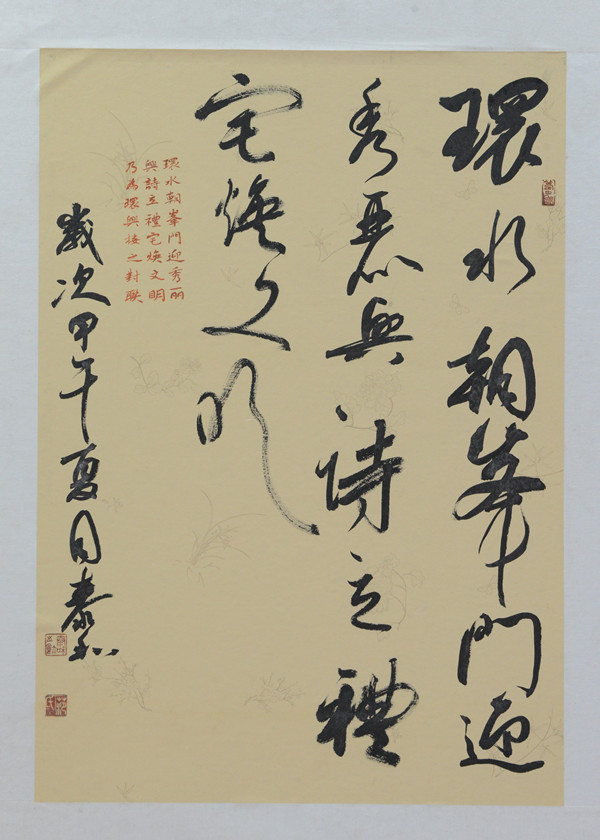 環水朝峯門迎
秀丽興詩立禮
宅煥文明
環水朝峯門迎秀丽
興詩立禮宅煥文明
乃為環興樓之對聯
歲次甲午夏月泰和